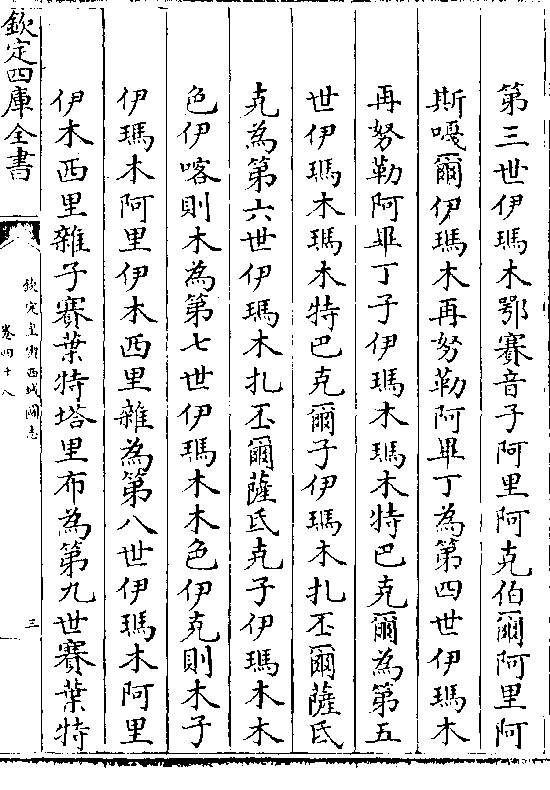 第三世伊瑪木鄂賽音子阿里阿克伯爾阿里阿
斯嘎爾伊瑪木再努勒阿畢丁為第四世伊瑪木
再努勒阿畢丁子伊瑪木瑪木特巴克爾為第五
世伊瑪木瑪木特巴克爾子伊瑪木扎丕爾薩氐
克為第六世伊瑪木扎丕爾薩氐克子伊瑪木木
色伊喀則木為第七世伊瑪木木色伊克則木子
伊瑪木阿里伊木西里雜為第八世伊瑪木阿里
伊木西里雜子賽葉特塔里布為第九世賽葉特
欽定四庫全書
欽定皇輿西域圖志
卷四十八
三